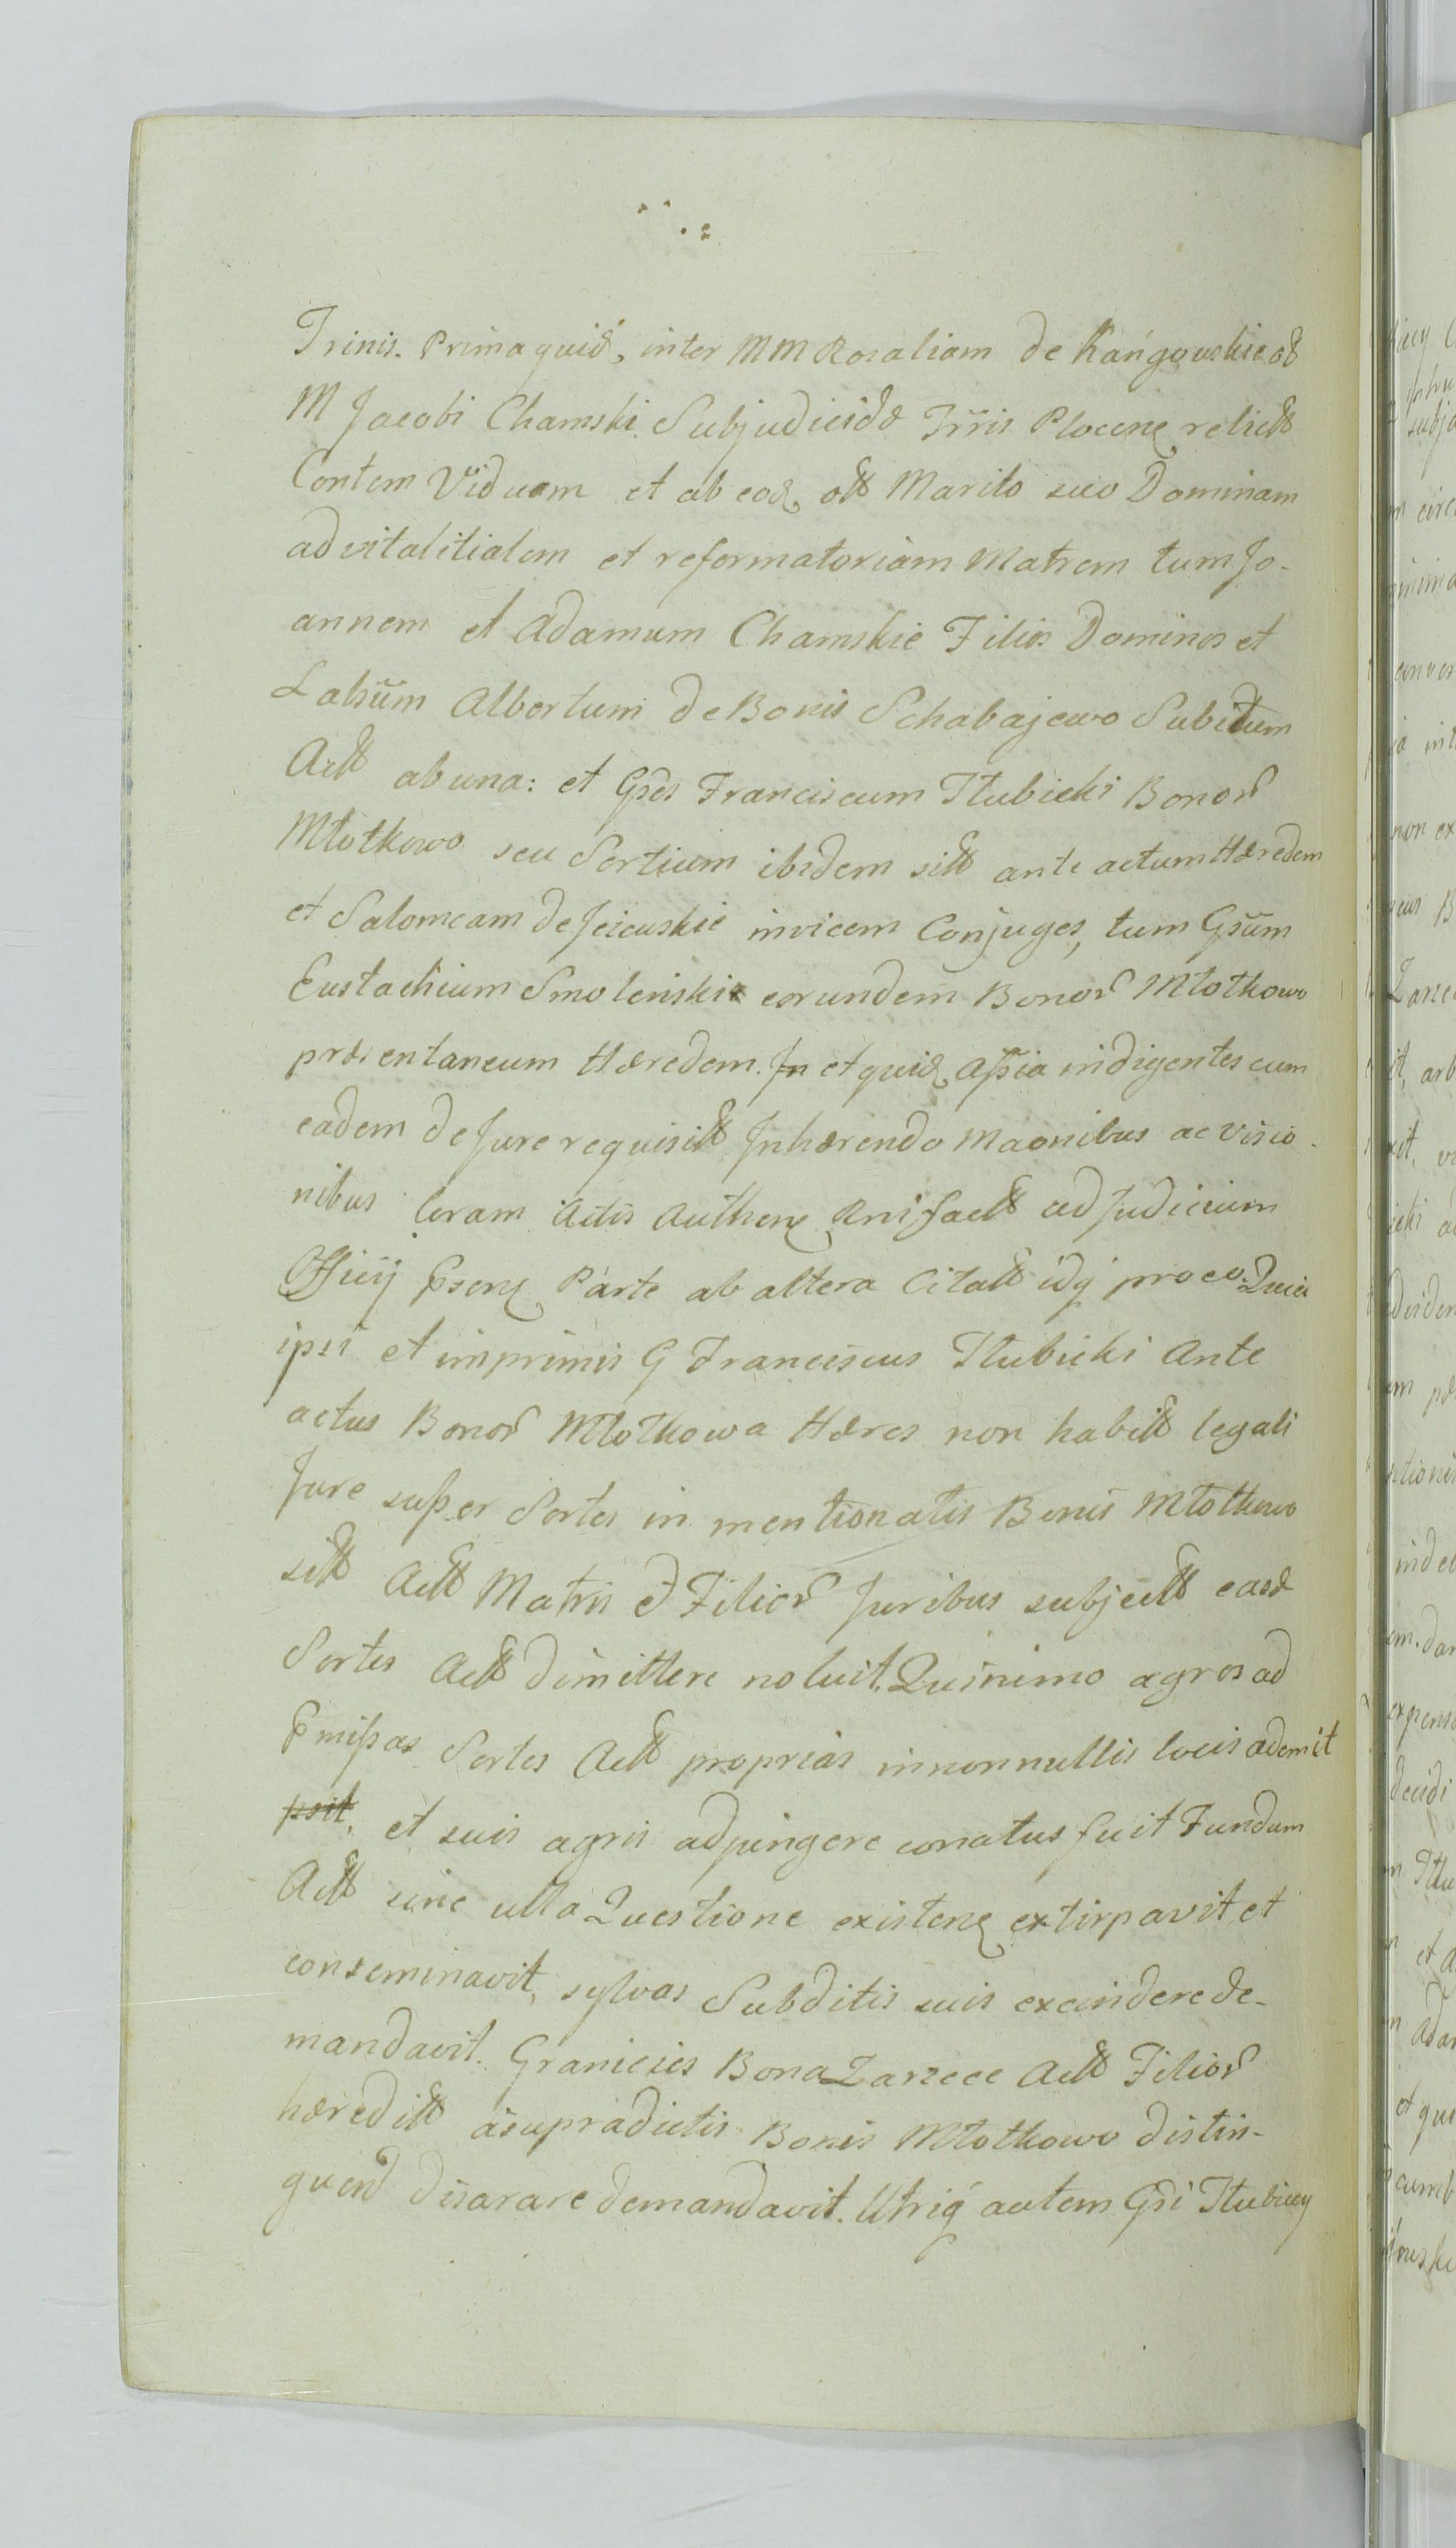 Trinis. Prima quid, inter MM Rosaliam de Kańgowskie ol
M Jacobi Chamski Subjudicis Trris Plocen relict
Contem Viduam et ab eod olt Marito suo Dominam
advitalitialem et reformatoriam Matrem tum Jo-
annem et Adamum Chamskie Filios Dominos et
Labsum Albertum de Bonis Schabajewo Subdtum
Act ab una: et Gsos Franciscum Tłubicki Bonor
Młotkowo seu Sortium ibidem sitt ante actum Hæredem
et Salomeam de Jeżewskie invicem Conjuges, tum Gsum
Eustachium Smoleński eorundem Bonor Młotkowo
præsentaneum Hæredem. et quid aßia indigentes cum
eadem de Jure requisit Inhærendo maonibus ac visio-
nibus Coram Actis Authen Rni fact ad Judicium
Officij Psens Parte ab altera Citatt idq pro eo. Quia
ipsi et imprimis G Franciscus Tłubicki Ante
actus Bonor Młotkowa Hæres non habitt legali
Jure super Sortes in mentionatis Bonis Młotkowo
sitt Act Matris et Filior Juribus subjectt easd
Sortes Act dimittere noluit. Quinimo agros ad
Pmißas Sortes Act proprias in nonnullis locis ademit
psit, et suis agris adpingere conatus fuit Fundum
Act sine ulla Questione existens extirpavit et
conseminavit, sylvas Subditis suis excindere de-
mandavit. Granicies Bona Zarzece Act Filior
hæreditt a supradictis Bonis Młotkowo distin-
guend disarare demandavit. Utriq autem Gsi Tłubiccy
hicy
subj
circ
conver
int
non ex
B
arb
expens
decidi
Tłu
et a
Ada
et que
cumb